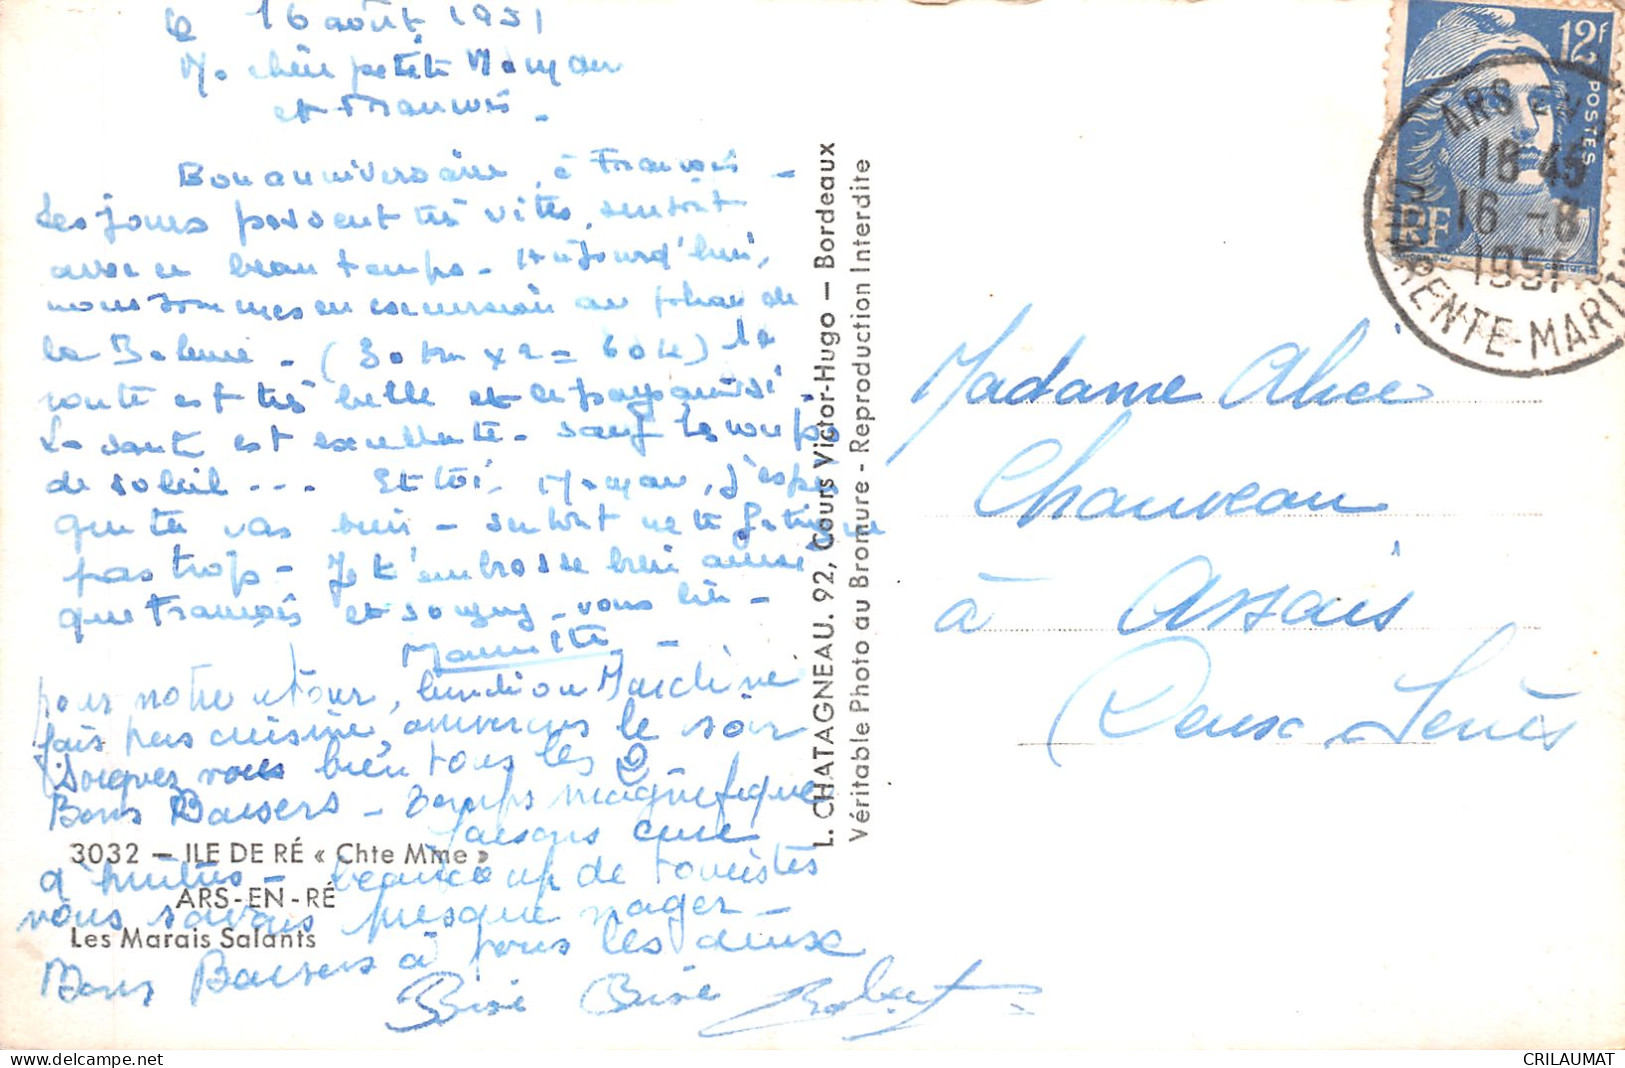 le 16 août 1951
Ma chère petite Maman
et François -
Bon anniversaire, à François -
Les jours passent très vite, surtout
avec ce beau temps - Aujourd'hui,
nous sommes en excursion au phare de
la Baleine - (30 km x 2 = 60 k) la
route est très belle et le pays aussi
La santé est excellente - sauf les coups
de soleil ... Et toi, Maman, j'espère
que tu vas bien - surtout ne te fatigue
pas trop - Je t'embrasse bien ainsi
que François et soignez-vous bien -
pour notre retour, lundi ou Mardi ne
fais pas cuisine, arriverons le soir
Soignez vous bien tous les 2
Bons Baisers - Temps magnifique
faisons cure
d'huîtres - beaucoup de touristes
nous savons presque nager -
Bons Baisers à tous les deux
Bise Bise Robert
3032 - ILE DE RÉ « Chte Mme »
ARS-EN-RÉ
Les Marais Salants
L. CHATAGNEAU. 92, Cours Victor-Hugo - Bordeaux
Véritable Photo au Bromure - Reproduction Interdite
12f
POSTES
RF
ARS EN
18 45
16 - 8
1951
CHARENTE-MARIT
Madame Alice
Chauveau
à Assais
Deux Sèvres
CRILAUMAT